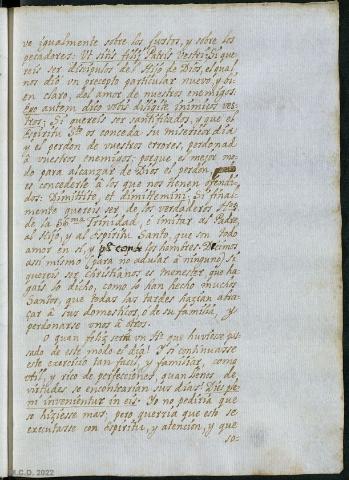 ve igualmente sobre los justos, y sobre los
pecadores: Ut sitis filij Patris Vestri. Si que-
reis ser discipulos del Hijo de Dios, el qual
nos dió un precepto particular nuevo, y bi-
en claro, del amor de nuestros enemigos:
Ego autem dico vobis diligite inimicos ves-
tros: Si quereis ser santificados, y que el
Espiritu Sto os conceda su misericordia
y el perdon de vuestros errores, perdonad
à vuestros enemigos; porque el mejor me-
dio para alcanzar de Dios el perdon,
es concederle à los que nos tienen ofendi-
dos: Dimittite, et dimittemini. Si final-
mente quereis ser de los verdaderos
de la SSma Trinidad, è imitar al Padre,
al Hijo, y al Espiritu Santo, que son todo
amor en sí, y con los hombres. Decimos
assi mismo (para no adular à ninguno) Si
quereis ser Christianos es menester que ha-
gais lo dicho, como lo han hecho muchos
Santos, que todas las tardes hazian abra-
zar à sus domesticos, ò de su familia, y
perdonarse unos à otros.
O quan feliz serà un que huviesse pas-
sado de este modo el dia! Y si continuasse
este exercicio tan facil, y familiar, como
util, y rico de perfecciones, quan llenos de
virtudes se encontrarian sus dias! Dies ple-
ni invenientur in eis. Yo no pediria que
se hiziesse mas; pero querria que esto se
executasse con Espiritu, y atencion, y que
so-
M.C.D. 2022